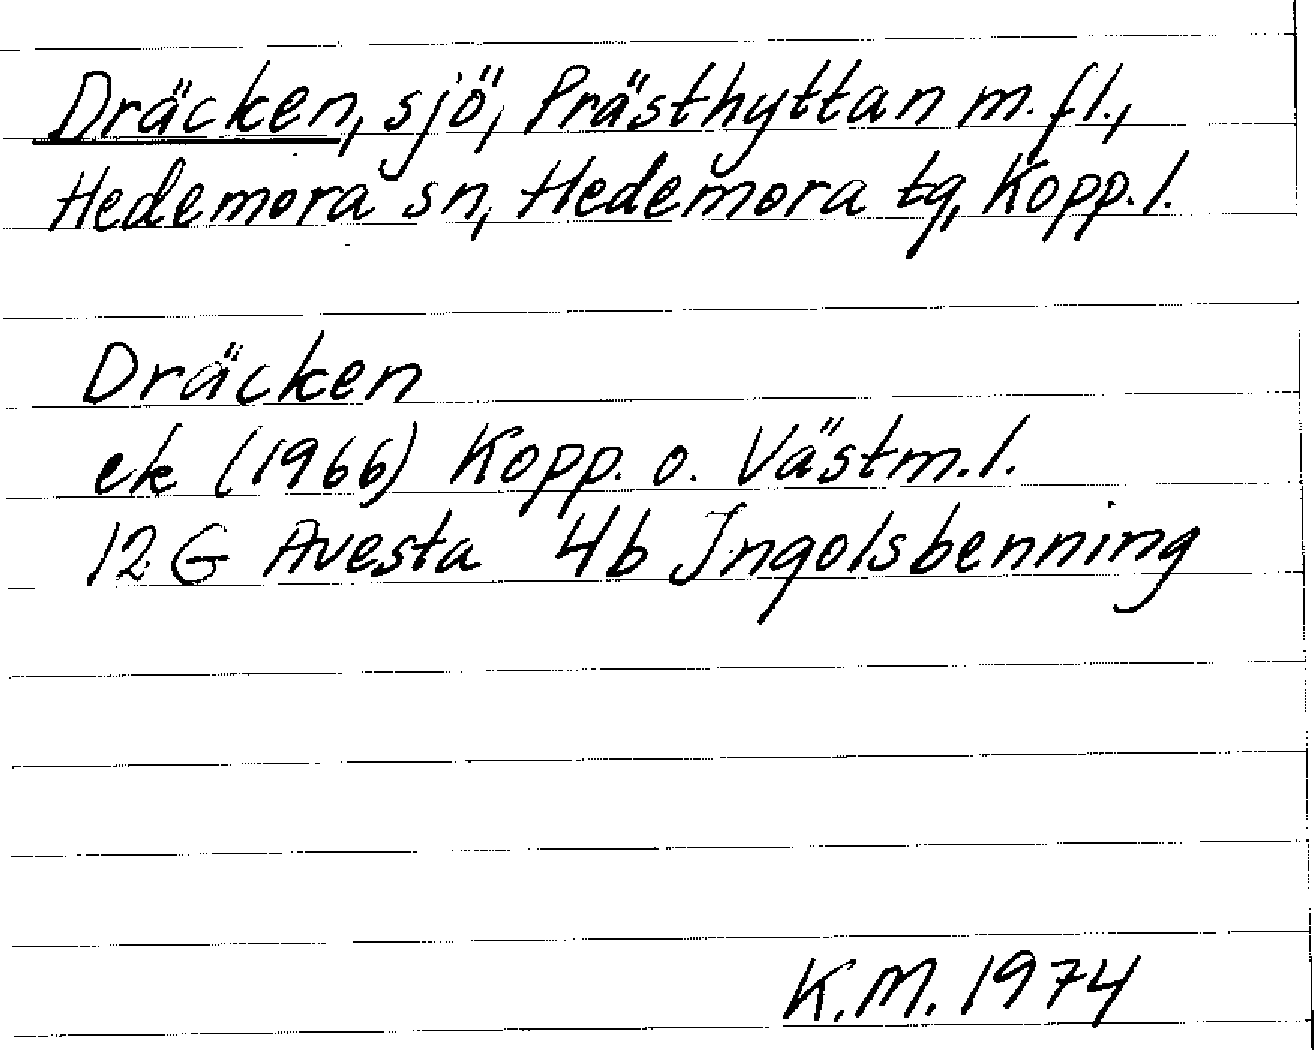 Dräcken, sjö, Prästhyttan m.fl.,
Hedemora sn, Hedemora tg, Kopp.l.
Dräcken
ek (1966) Kopp. o. Västm.l.
12 G Avesta 4b Ingolsbenning
K.M. 1974